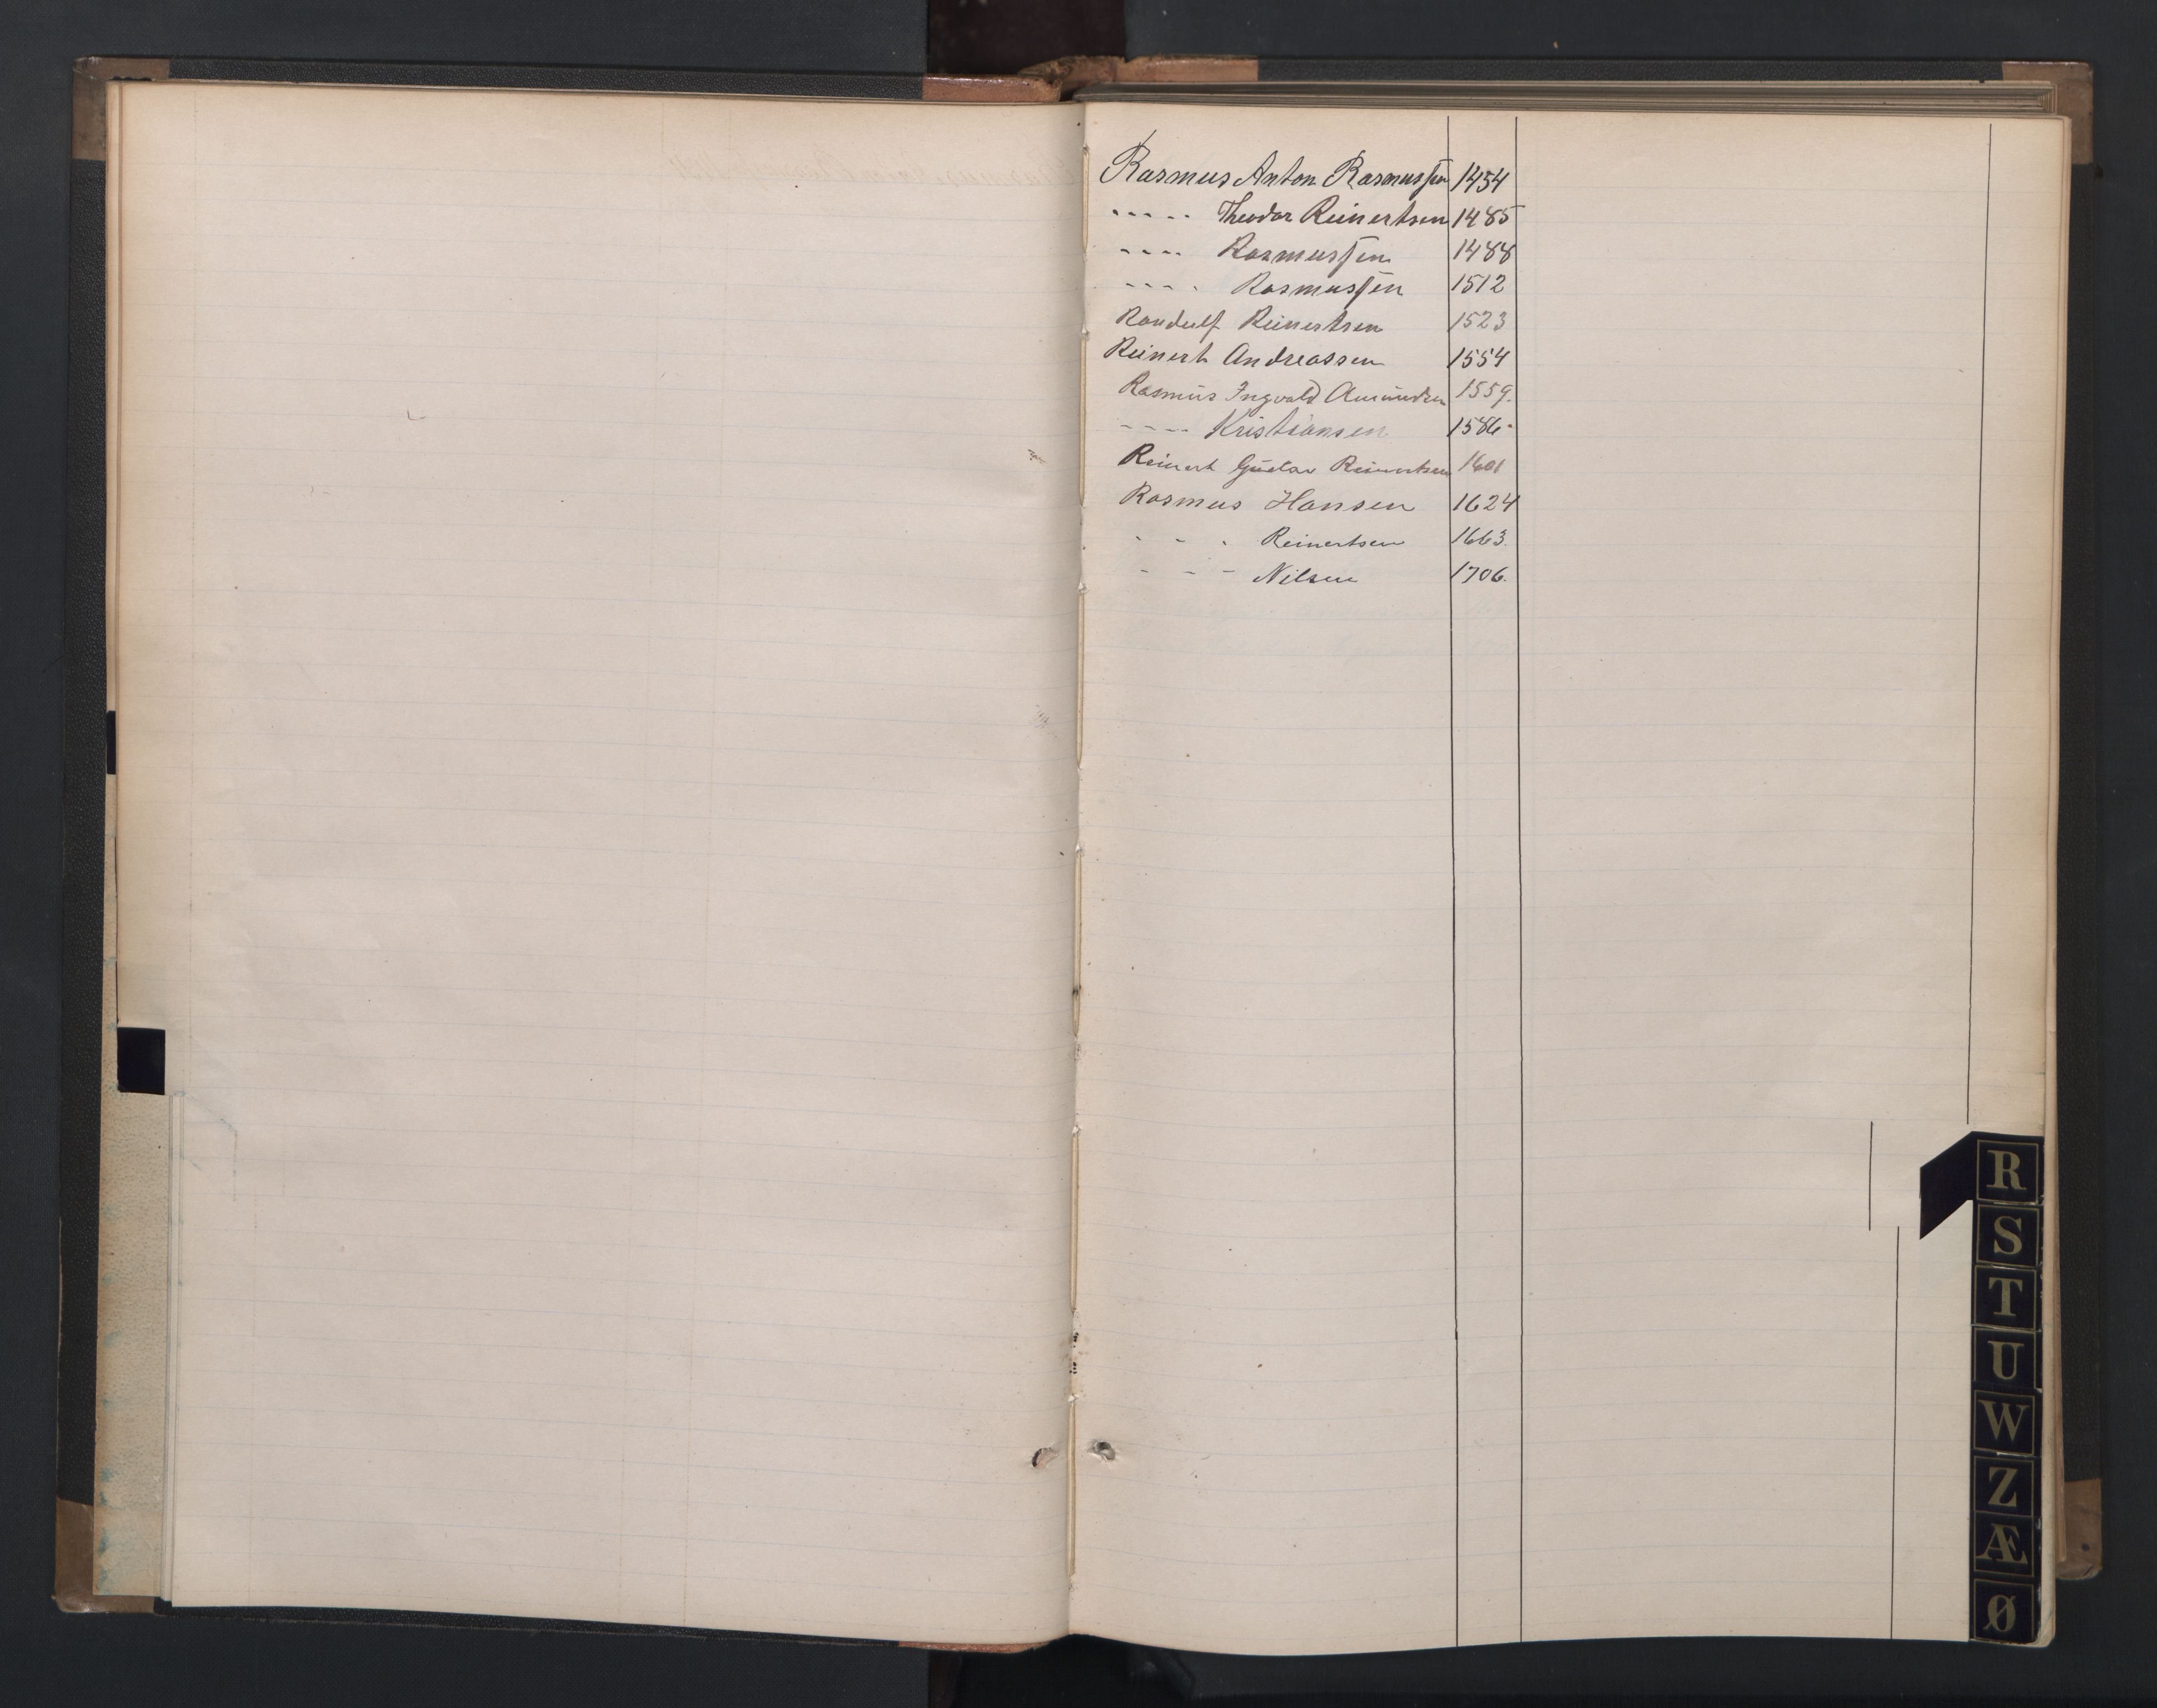 Rasmus Anton Rasmussen 1454
----- Theodor Reinertsen 1485
---- Rasmussen 1488
---- Rasmussen 1512
Randulf Reinertsen 1523
Reinert Andreassen 1554
Rasmus Ingvald Amundsen 1559.
---- Kristiansen 1586-
Reinert Gustav Reinertsen 1601
Rasmus Hansen 1624
- - - Reinertsen 1663.
- - - Nilsen 1706.
R
S
T
U
W
Z
Æ
Ø